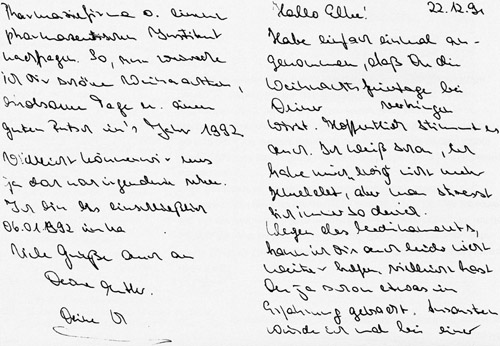 Hallo Elke! 22.12.91
Habe einfach einmal an-
genommen, daß Du die
Weihnachtsfeiertage bei
Deiner verbringen
wirst. Hoffentlich stimmt es
auch. Ich weiß schon, ich
habe mich nicht mehr
gemeldet, aber man stresst
sich immer so durch.
Wegen des Medikaments,
kann ich Dir auch leider nicht
weiter helfen, vielleicht hast
Du ja schon etwas in
Erfahrung gebracht. Ansonsten
würde ich mal bei einer
Pharmaziefirma o. einem
pharmazeutischen Institut
nachfragen. So, nun wünsche
ich Dir schöne Weihnachten,
erholsame Tage u. einen
guten Rutsch in's Jahr 1992
Vielleicht können wir uns
ja da mal irgendwie sehen.
Ich bin bis einschließlich
06.01.1992
Viele Grüße auch an
Deine Mutter.
Deine